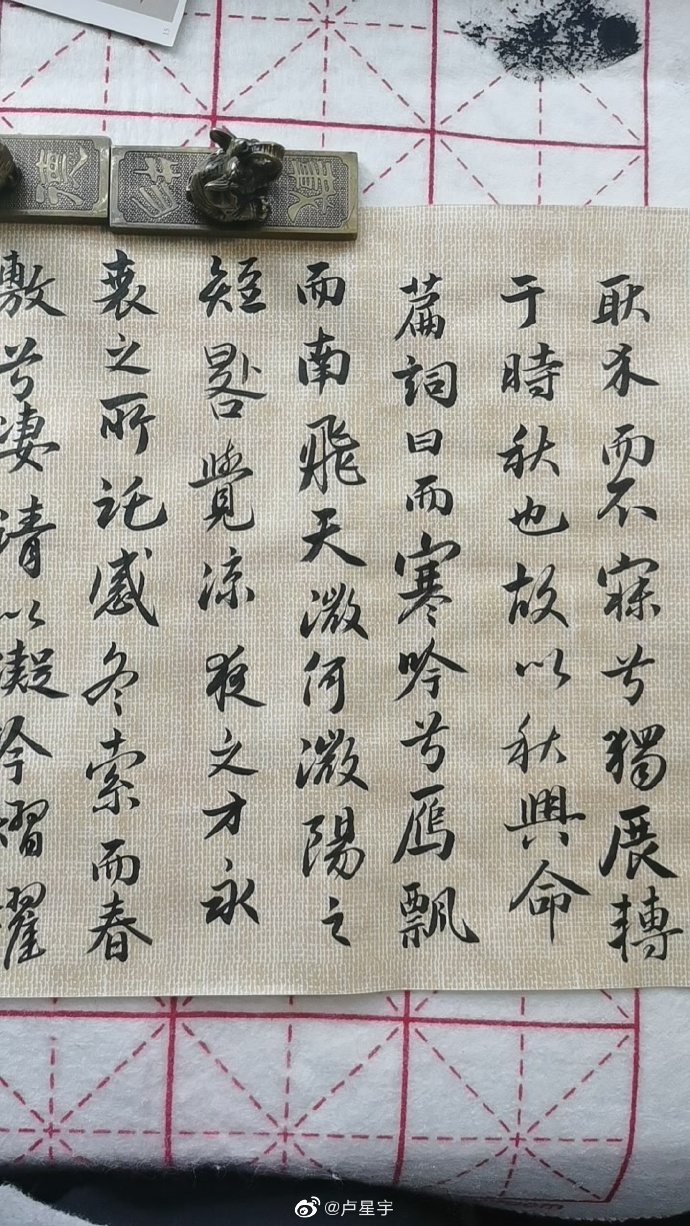 載物
耿介而不寐兮獨展轉
于時秋也故以秋興命
篇詞曰而寒吟兮鴈飄
而南飛天溦何溦陽之
短晷覺涼夜之方永
衰之所託感冬索而春
敷兮凄清以凝冷熠燿
@卢星宇